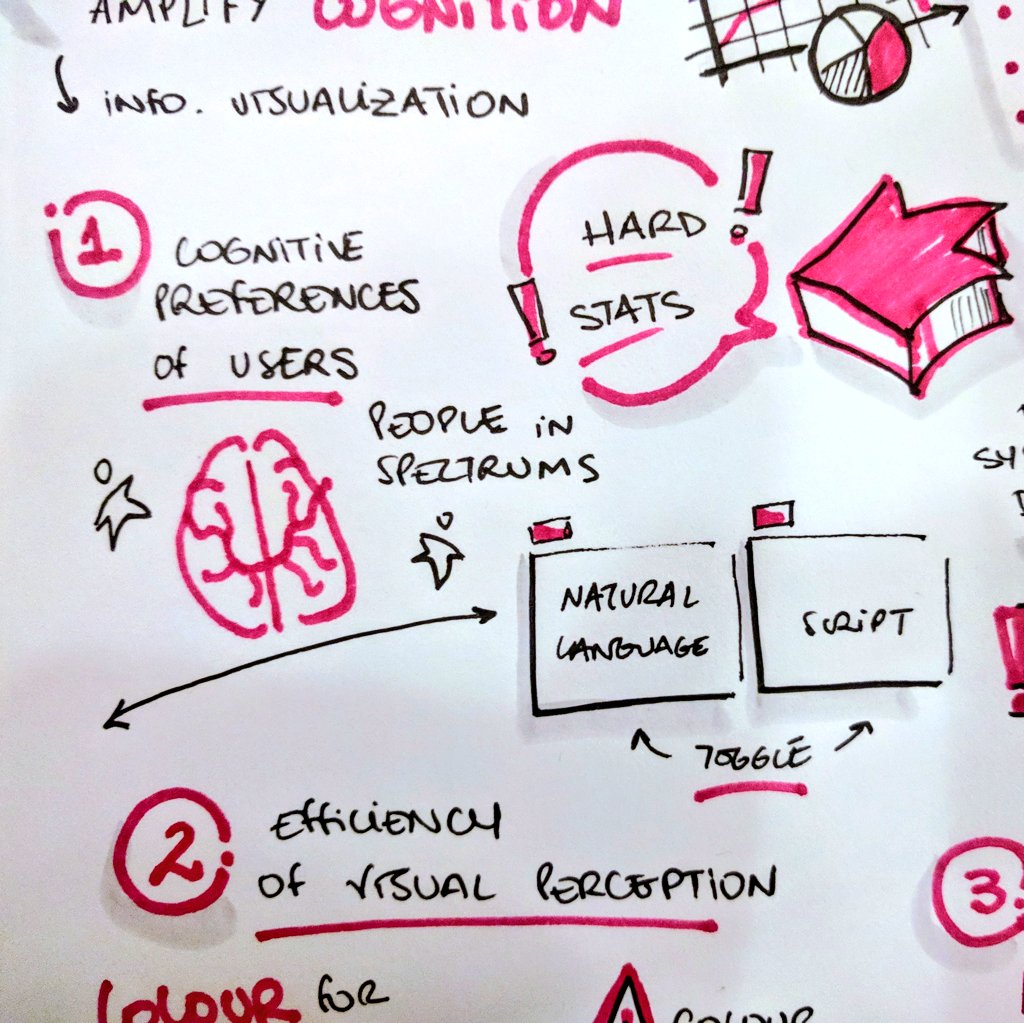 AMPLIFY COGNITION
INFO. VISUALIZATION
1
COGNITIVE
PREFERENCES
OF USERS
HARD
STATS
PEOPLE IN
SPECTRUMS
NATURAL
LANGUAGE
SCRIPT
TOGGLE
2
EFFICIENCY
OF VISUAL PERCEPTION
3.
COLOUR FOR
COLOUR